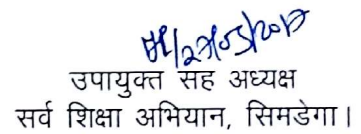 27/05/2017
उपायुक्त सह अध्यक्ष
सर्व शिक्षा अभियान, सिमडेगा।